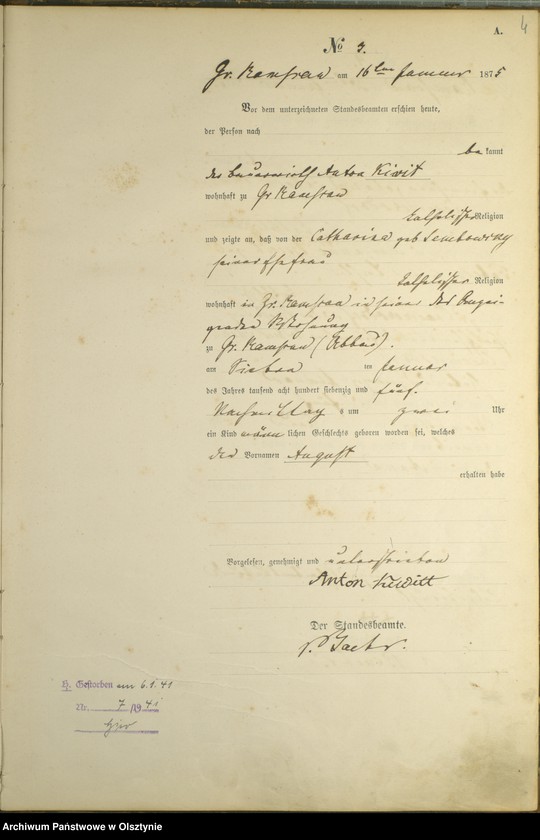 4
A.
No 3.
Gr. Ramsau am 16ten Januar 1875
Vor dem unterzeichneten Standesbeamten erschien heute,
der Person nach
be kannt
der Anton Kiwit
wohnhaft zu Gr Ramsau
katholischer Religion
und zeigte an, daß von der Catharina geb
seiner Ehefrau
katholischer Religion
wohnhaft in Gr. Ramsau in seiner des
Wohnung
zu Gr. Ramsau (Abbau).
am Sieben ten Januar
des Jahres tausend acht hundert siebenzig und fünf.
Nachmittag s um zwei Uhr
ein Kind männ lichen Geschlechts geboren worden sei, welches
den Vornamen August
erhalten habe
Vorgelesen, genehmigt und unterschrieben
Anton Kiwitt
Der Standesbeamte.
H. Gestorben am 6.1.41
Nr. 7/1941
Archiwum Państwowe w Olsztynie